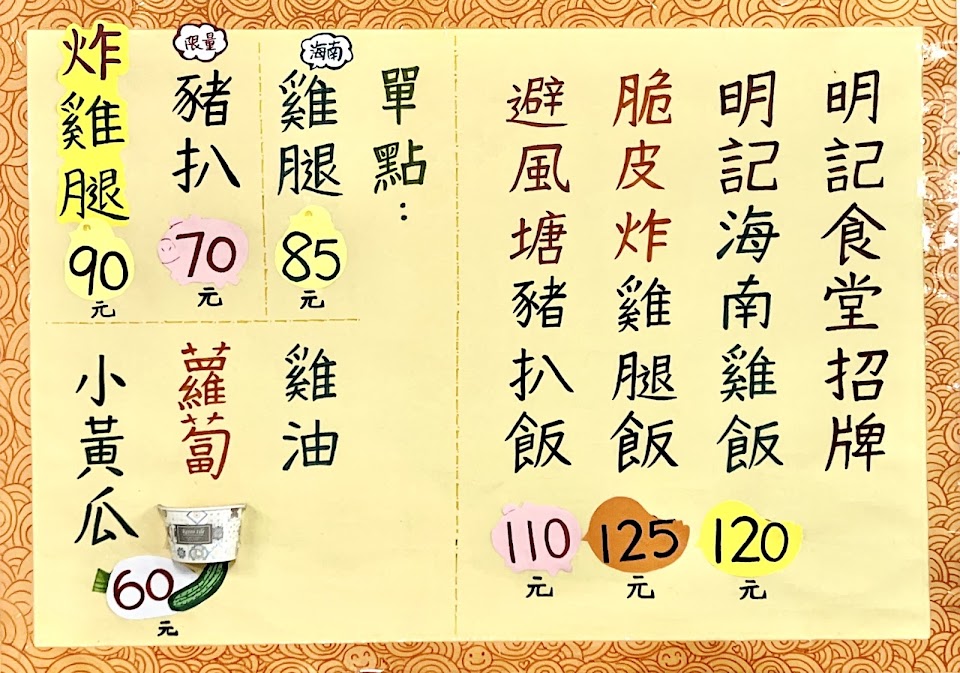 明記食堂招牌
明記海南雞飯
120
元
脆皮炸雞腿飯
125
元
避風塘豬扒飯
110
元
單點：
海南
雞腿
85
元
限量
豬扒
70
元
炸雞腿
90
元
雞油
蘿蔔
小黃瓜
60
元